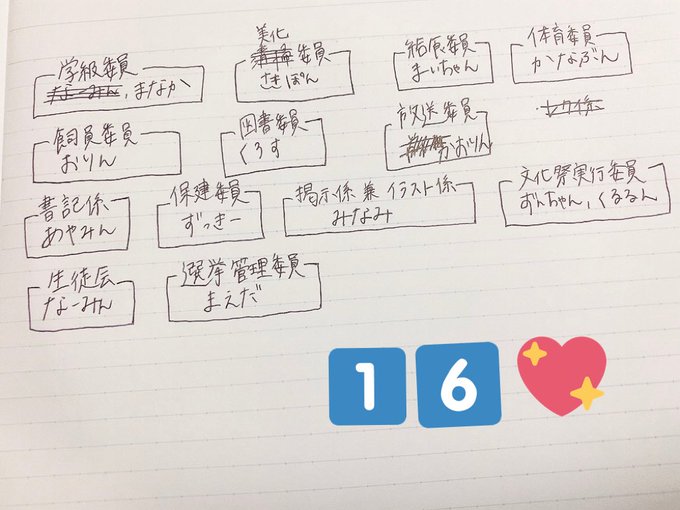 学級委員
なーみん、まなか
美化
委員
さきぽん
給食委員
まいちゃん
体育委員
かなぶん
飼育委員
おりん
図書委員
くろす
放送委員
かおりん
係
書記係
あやみん
保健委員
ずっきー
掲示係 兼 イラスト係
みなみ
文化祭実行委員
ずんちゃん、くるるん
生徒会
なーみん
選挙管理委員
まえだ
1 6